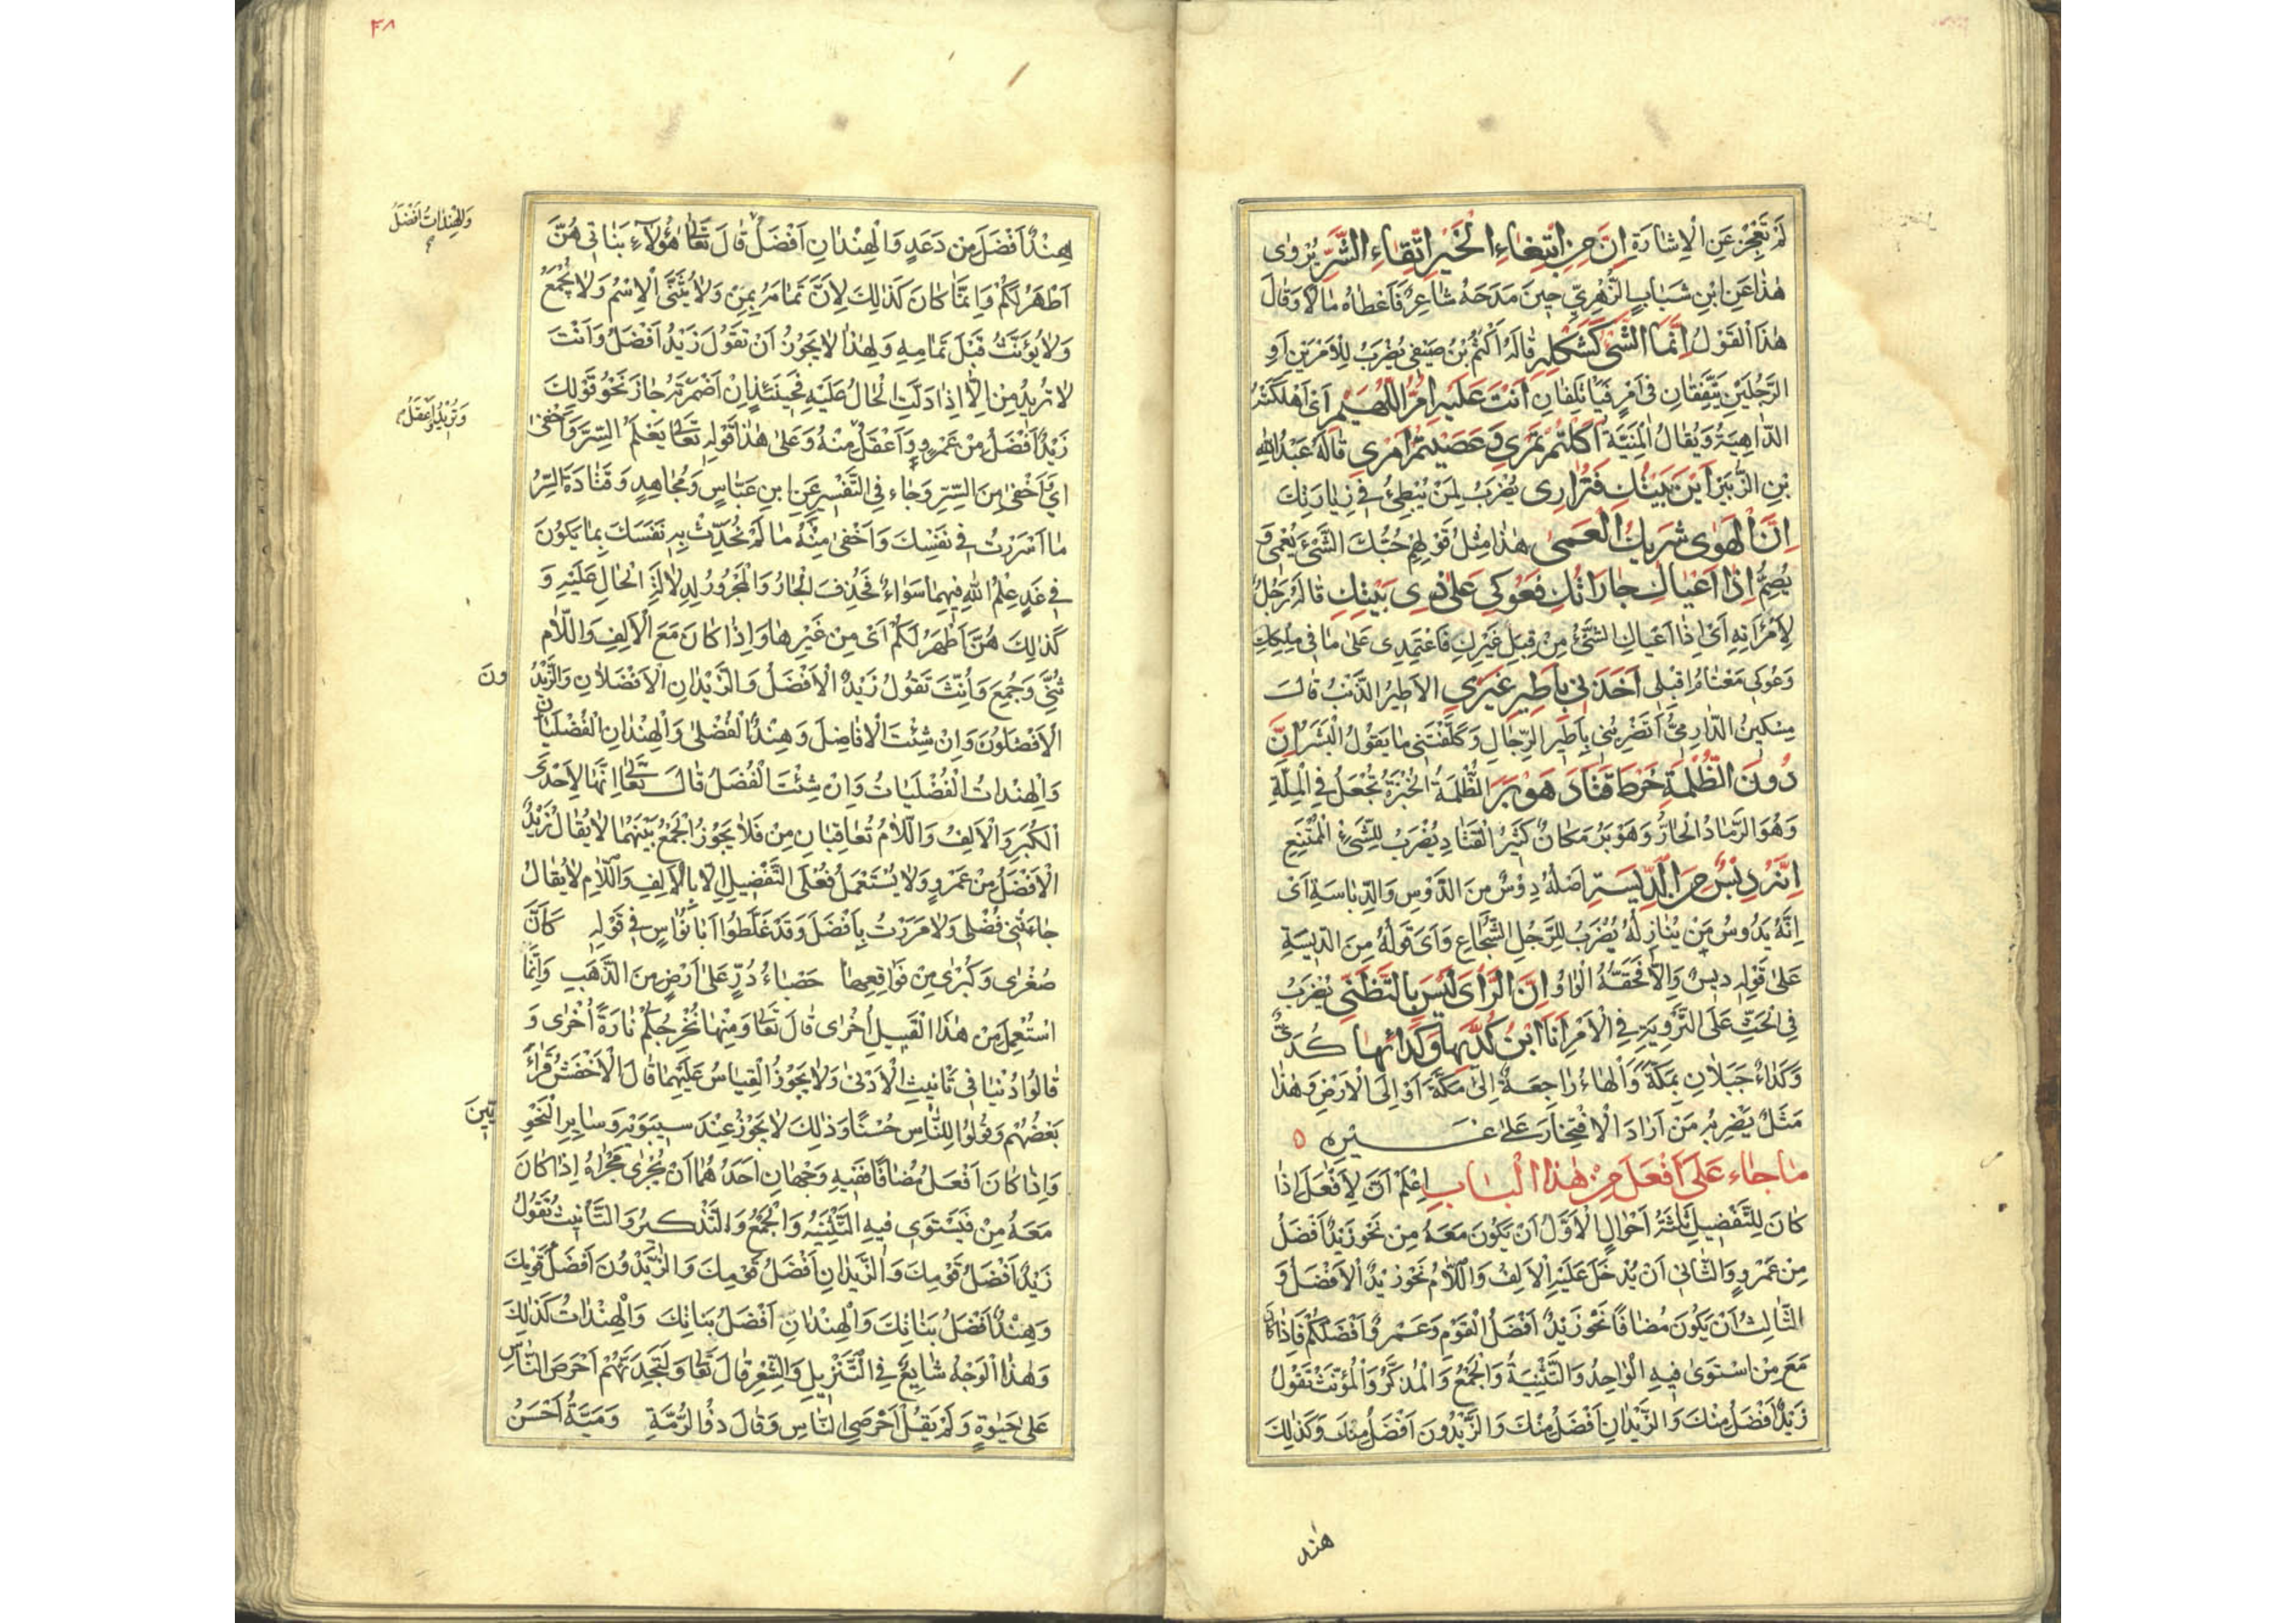 لَمْ تَعْجِزْ عَنِ الْاِشَارَةِ اِنَّ مِنِ ابْتِغَاءِ الْخَيْرِ اتِّقَاءِ الشَّرِّ يُرْوٰى
هٰذَا عَنِ ابْنِ شَهَابٍ الزُّهْرِيِّ حِينَ مَدَحَهُ شَاعِرٌ فَاَعْطَاهُ مَالًا وَقَالَ
هٰذَا الْقَوْلُ اِنَّمَا الشَّيْءُ كَشَكْلِهِ قَالَهُ اَكْثَمُ بْنُ صَيْفِي يُضْرَبُ لِلْاَمْرَيْنِ اَوِ
الرَّجُلَيْنِ يَتَّفِقَانِ فِي اَمْرٍ فَيَأْتَلِفَانِ اَتَتْ عَلَيْهِ اُمُّ اللُّهَيْمِ اَيْ اَهْلَكَتْهُ
الدَّاهِيَةُ وَيُقَالُ الْمَنِيَّةُ اَكَلْتُمْ تَمْرِي وَعَصَيْتُمْ اَمْرِي قَالَهُ عَبْدُ اللهِ
بْنِ الزُّبَيْرِ اَيْنَ بَيْتُكِ فَتُزَارِى يُضْرَبُ لِمَنْ يُبْطِئُ فِي زِيَارَتِكَ
اِنَّ الْهَوٰى شَرِيكُ الْعَمٰى هٰذَا مِثْلُ قَوْلِهِمْ حُبُّكَ الشَّيْءَ يُعْمِي وَ
يُصِمُّ اِذَا اَعْيَاكِ جَارَاتُكِ فَعَوْكِي عَلٰى ذِى بَيْتِكِ قَالَهُ رَجُلٌ
لِامْرَأَتِهِ اَىْ اِذَا اَعْيَاكِ الشَّيْءُ مِنْ قِبَلِ غَيْرِكِ فَاعْتَمِدِى عَلٰى مَا فِي مِلْكِكِ
وَعُوكِي مَعْنَاهُ اِقْبِلِي اَخَذَنِى بِاَطِيرِ غَيْرِي الْاَطِيرُ الذَّنْبُ قَالَ
مِسْكِينُ الدَّارِمِيُّ اَتَضْرِبُنِي بِاَطِيرِ الرِّجَالِ وَكَلَّفْتَنِي مَا يَقُولُ الْبَشَرْ اِنَّ
دُونَ الظُّلْمَةِ خَرْطَ قَتَادَ هَوْبَرَ الظُّلْمَةُ الْخُبْزَةُ تُجْعَلُ فِي الْمَلَّةِ
وَهُوَ الرَّمَادُ الْحَارُّ وَهَوْبَرُ مَكَانٌ كَثِيرُ الْقَتَادِ يُضْرَبُ لِلشَّيْءِ الْمُمْتَنِعِ
اِنَّهُ دِيسٌ مِنَ الدِّيَسَةِ اَصْلُهُ دِوْسٌ مِنَ الدَّوْسِ وَالدِّيَاسَةِ اَىْ
اِنَّهُ يَدُوسُ مَنْ يُنَازِلُهُ يُضْرَبُ لِلرَّجُلِ الشُّجَاعِ وَاَىَ قَوْلُهُ مِنَ الدِّيَسَةِ
عَلٰى قَوْلِهِ دِيسٌ وَاِلَّا فَحَقُّهُ الْوَاوُ اِنَّ الرَّأْىَ لَيْسَ بِالتَّظَنِّي يُضْرَبُ
فِي الْحَثِّ عَلَى التَّرْوِيَةِ فِي الْاَمْرِ اَنَا ابْنُ كُدَيِّهَا وَكَدَائِهَا كُدَيٌّ
وَكَدَاءُ جَبَلَانِ بِمَكَّةَ وَالْهَاءُ رَاجِعَةٌ اِلٰى مَكَّةَ اَوْ اِلَى الْاَرْضِ وَهٰذَا
مَثَلٌ يَضْرِبُهُ مَنْ اَرَادَ الْاِفْتِخَارَ عَلٰى غَيْرِهِ ٥
مَا جَاءَ عَلٰى اَفْعَلَ مِنْ هٰذَا الْبَابِ اِعْلَمْ اَنَّ لِاَفْعَلَ اِذَا
كَانَ لِلتَّفْضِيلِ ثَلٰثَةُ اَحْوَالٍ الْاَوَّلُ اَنْ يَكُونَ مَعَهُ مِنْ نَحْوُ زَيْدٌ اَفْضَلُ
مِنْ عَمْرٍو وَالثَّانِي اَنْ يُدْخَلَ عَلَيْهِ الْاَلِفُ وَاللَّامُ نَحْوُ زَيْدٌ الْاَفْضَلُ وَ
الثَّالِثُ اَنْ يَكُونَ مُضَافًا نَحْوُ زَيْدٌ اَفْضَلُ الْقَوْمِ وَعَمْرٌو اَفْضَلُكُمْ فَاِذَا كَانَ
مَعَ مِنْ اسْتَوٰى فِيهِ الْوَاحِدُ وَالتَّثْنِيَةُ وَالْجَمْعُ وَالْمُذَكَّرُ وَالْمُؤَنَّثُ تَقُولُ
زَيْدٌ اَفْضَلُ مِنْكَ وَالزَّيْدَانِ اَفْضَلُ مِنْكَ وَالزَّيْدُونَ اَفْضَلُ مِنْكَ وَكَذٰلِكَ
هند
٤٨
هِنْدٌ اَفْضَلُ مِنْ دَعْدٍ وَالْهِنْدَانِ اَفْضَلُ قَالَ تَعَالٰى هٰؤُلَاءِ بَنَاتِي هُنَّ
وَالْهِنْدَاتُ اَفْضَلُ
اَطْهَرُ لَكُمْ وَاِنَّمَا كَانَ كَذٰلِكَ لِاَنَّ تَمَامَهُ بِمِنْ وَلَا يُثَنَّى الْاِسْمُ وَلَا يُجْمَعُ
وَلَا يُؤَنَّثُ قَبْلَ تَمَامِهِ وَلِهٰذَا لَا يَجُوزُ اَنْ تَقُولَ زَيْدٌ اَفْضَلُ وَاَنْتَ
لَا تُرِيدُ مِنْ اِلَّا اِذَا دَلَّتِ الْحَالُ عَلَيْهِ فَحِينَئِذٍ اِنْ اَضْمَرْتَهُ جَازَ نَحْوُ قَوْلِكَ
زَيْدٌ اَفْضَلُ مِنْ عَمْرٍو وَاَعْقَلُ مِنْهُ وَعَلٰى هٰذَا قَوْلُهُ تَعَالٰى يَعْلَمُ السِّرَّ وَاَخْفٰى
وَتُرِيدُ وَاَعْقَلُ
اَيْ وَاَخْفٰى مِنَ السِّرِّ وَجَاءَ فِي التَّفْسِيرِ عَنِ ابْنِ عَبَّاسٍ وَمُجَاهِدٍ وَقَتَادَةَ السِّرُّ
مَا اَسْرَرْتَ فِي نَفْسِكَ وَاَخْفٰى مِنْهُ مَا لَمْ تُحَدِّثْ بِهِ نَفْسَكَ بِمَا يَكُونَ
فِي غَدٍ عِلْمُ اللهِ فِيهِمَا سَوَاءٌ فَحُذِفَ الْجَارُّ وَالْمَجْرُورُ لِدِلَالَةِ الْحَالِ عَلَيْهِ وَ
كَذٰلِكَ هُنَّ اَطْهَرُ لَكُمْ اَىْ مِنْ غَيْرِهَا وَاِذَا كَانَ مَعَ الْاَلِفِ وَاللَّامِ
ثُنِّيَ وَجُمِعَ وَاُنِّثَ تَقُولُ زَيْدٌ الْاَفْضَلُ وَالزَّيْدَانِ الْاَفْضَلَانِ وَالزَّيْدُ
ونَ
الْاَفْضَلُونَ وَاِنْ شِئْتَ الْاَفَاضِلَ وَهِنْدٌ الْفُضْلٰى وَالْهِنْدَانِ الْفُضْلَيَانِ
وَالْهِنْدَاتُ الْفُضْلَيَاتُ وَاِنْ شِئْتَ الْفُضَلُ قَالَ تَعَالٰى اِنَّهَا لَاِحْدَى
الْكُبَرِ وَالْاَلِفُ وَاللَّامُ تُعَاقِبَانِ مِنْ فَلَا يَجُوزُ الْجَمْعُ بَيْنَهُمَا لَا يُقَالُ زَيْدٌ
الْاَفْضَلُ مِنْ عَمْرٍو وَلَا يُسْتَعْمَلُ فُعْلَى التَّفْضِيلِ اِلَّا بِالْاَلِفِ وَاللَّامِ لَا يُقَالُ
جَاءَتْنِي فُضْلٰى وَلَا مَرَرْتُ بِاَفْضَلَ وَقَدْ غَلَّطُوا اَبَا نُوَاسٍ فِي قَوْلِهِ كَاَنَّ
صُغْرٰى وَكُبْرٰى مِنْ فَوَاقِعِهَا حَصْبَاءُ دُرٍّ عَلٰى اَرْضٍ مِنَ الذَّهَبِ وَاِنَّمَا
اسْتُعْمِلَ مِنْ هٰذَا الْقَبِيلِ اُخْرٰى قَالَ تَعَالٰى وَمِنْهَا نُخْرِجُكُمْ تَارَةً اُخْرٰى وَ
قَالُوا دُنْيَا فِي تَأْنِيثِ الْاَدْنٰى وَلَا يَجُوزُ الْقِيَاسُ عَلَيْهِمَا قَالَ الْاَخْفَشُ قَرَاَ
بَعْضُهُمْ وَقُولُوا لِلنَّاسِ حُسْنًا وَذٰلِكَ لَا يَجُوزُ عِنْدَ سِيبَوَيْهِ وَسَايِرِ النَّحْوِ
يِّينَ
وَاِذَا كَانَ اَفْعَلُ مُضَافًا فَفِيهِ وَجْهَانِ اَحَدُهُمَا اَنْ يُجْرٰى مَجْرَاهُ اِذَا كَانَ
مَعَهُ مِنْ فَيَسْتَوِي فِيهِ التَّثْنِيَةُ وَالْجَمْعُ وَالتَّذْكِيرُ وَالتَّأْنِيثُ تَقُولُ
زَيْدٌ اَفْضَلُ قَوْمِكَ وَالزَّيْدَانِ اَفْضَلُ قَوْمِكَ وَالزَّيْدُونَ اَفْضَلُ قَوْمِكَ
وَهِنْدٌ اَفْضَلُ بَنَاتِكَ وَالْهِنْدَانِ اَفْضَلُ بَنَاتِكَ وَالْهِنْدَاتُ كَذٰلِكَ
وَهٰذَا الْوَجْهُ شَايِعٌ فِي التَّنْزِيلِ وَالشِّعْرِ قَالَ تَعَالٰى وَلَتَجِدَنَّهُمْ اَحْرَصَ النَّاسِ
عَلٰى حَيٰوةٍ وَلَمْ يَقُلْ اَحْرَصِي النَّاسِ وَقَالَ ذُو الرُّمَّةِ وَمَيَّةُ اَحْسَنُ